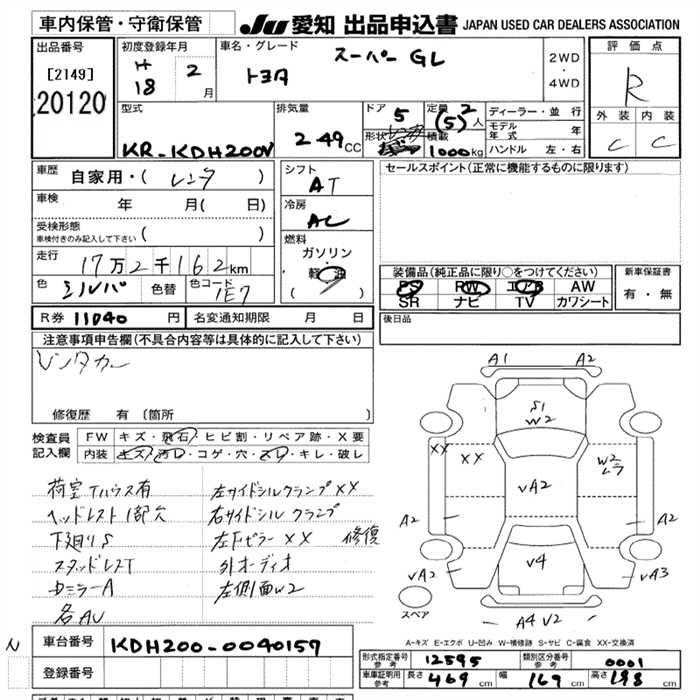 車内保管・守衛保管
JU 愛知 出品申込書 JAPAN USED CAR DEALERS ASSOCIATION
出品番号
[2149]
20120
初度登録年月
H 18 2 月
車名・グレード
トヨタ スーパーGL
2WD
・
4WD
評価点
R
外装 内装
C C
型式
KR-KDH200V
排気量
2.49 CC
ドア 5
形状
定員 2 (5) 人
積載 1000 kg
ディーラー・並行
モデル年式 年
ハンドル 左・右
車歴 自家用・( レンタ )
車検 年 月( 日)
受検形態
車検付きのみ記入して下さい ( )
走行 17万2千162km
色 シルバ 色替 色コード 1E7
シフト
AT
冷房
AC
燃料
ガソリン
・
軽 油
( )
セールスポイント(正常に機能するものに限ります)
装備品(純正品に限り○をつけてください)
PS PW エアB AW
SR ナビ TV カワシート
新車保証書
有・無
R券 11040 円 名変通知期限 月 日
後日品
注意事項申告欄(不具合内容等は具体的に記入して下さい)
レンタカー
修復歴 有 〔箇所 〕
検査員記入欄
FW キズ・飛石・ヒビ割・リペア跡・X要
内装 キズ・汚レ・コゲ・穴・スレ・キレ・破レ
荷室Tハウス有 左サイドシルクランプXX
ヘッドレスト1部欠 右サイドシルクランプ
下廻りS 左Fピラー XX 修復
スタッドレスT 外オーディオ
Dミラー A 左側面W2
各AU
A1 A2
S1
W2
XX XX
W2
vA2
A2 A2
v4
vA2 vA3
スペア
A4 V2
A-キズ E-エクボ U-凹み W-補修跡 S-サビ C-腐食 XX-交換済
N
車台番号 KDH200-0040159
登録番号
形式指定番号 参考 12595 類別区分番号 参考 0001
車庫証明用 参考 長さ 469 cm 幅 169 cm 高さ 198 cm